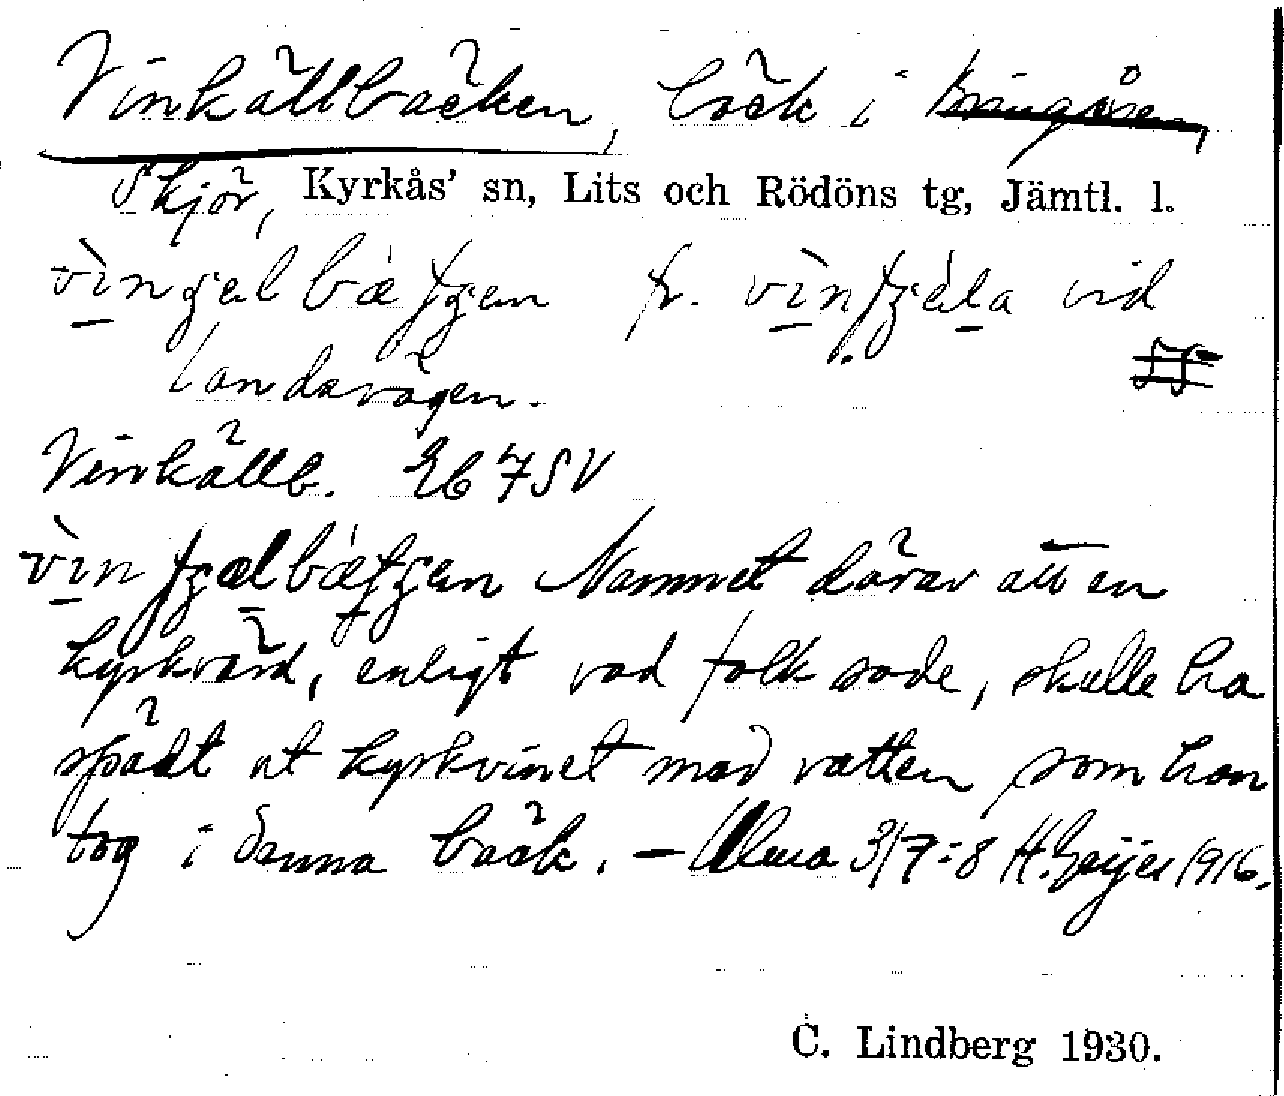 Vinkällbäcken, bäck i
Skjör, Kyrkås' sn, Lits och Rödöns tg, Jämtl. l.
fr. vid
landsvägen.
Vinkällb. Eb 7 SV
Namnet därav att en
kyrkvärd, enligt vad folk sade, skulle ha
spädt ut kyrkvinet med vatten som han
tog i denna bäck. – Ulma 317:8 H. Geijer 1916.
C. Lindberg 1930.